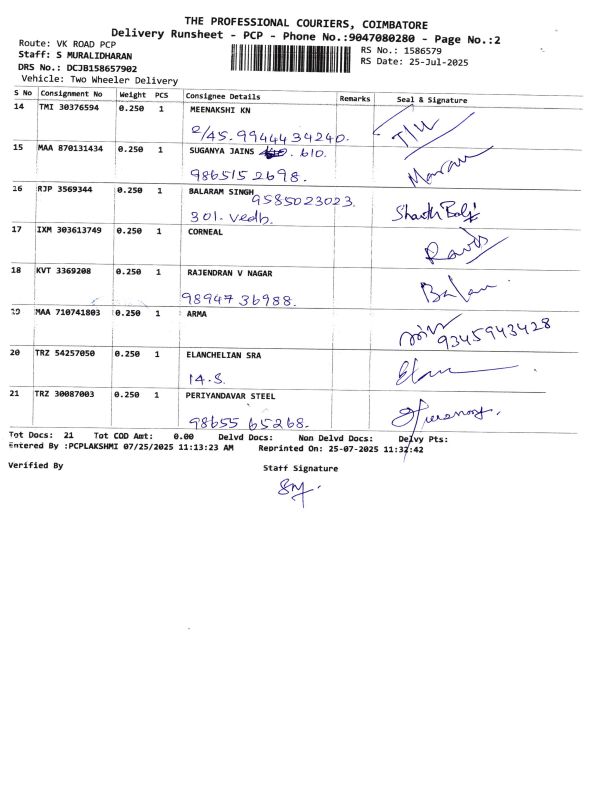 THE PROFESSIONAL COURIERS, COIMBATORE
Delivery Runsheet - PCP - Phone No.:9047080280 - Page No.:2
Route: VK ROAD PCP
Staff: S MURALIDHARAN
DRS No.: DCJB158657902
Vehicle: Two Wheeler Delivery
RS No.: 1586579
RS Date: 25-Jul-2025
S No Consignment No Weight PCS Consignee Details Remarks Seal & Signature
14 TMI 30376594 0.250 1 MEENAKSHI KN
2/45. 9944434240.
15 MAA 870131434 0.250 1 SUGANYA JAINS . 610.
9865152698.
16 RJP 3569344 0.250 1 BALARAM SINGH 9585023023.
301. Vedh.
17 IXM 303613749 0.250 1 CORNEAL
18 KVT 3369208 0.250 1 RAJENDRAN V NAGAR
9894736988. Balan
19 MAA 710741803 0.250 1 ARMA
9345943428
20 TRZ 54257050 0.250 1 ELANCHELIAN SRA
14.S.
21 TRZ 30087003 0.250 1 PERIYANDAVAR STEEL
98655 65268.
Tot Docs: 21 Tot COD Amt: 0.00 Delvd Docs: Non Delvd Docs: Delvy Pts:
Entered By :PCPLAKSHMI 07/25/2025 11:13:23 AM Reprinted On: 25-07-2025 11:32:42
Verified By Staff Signature